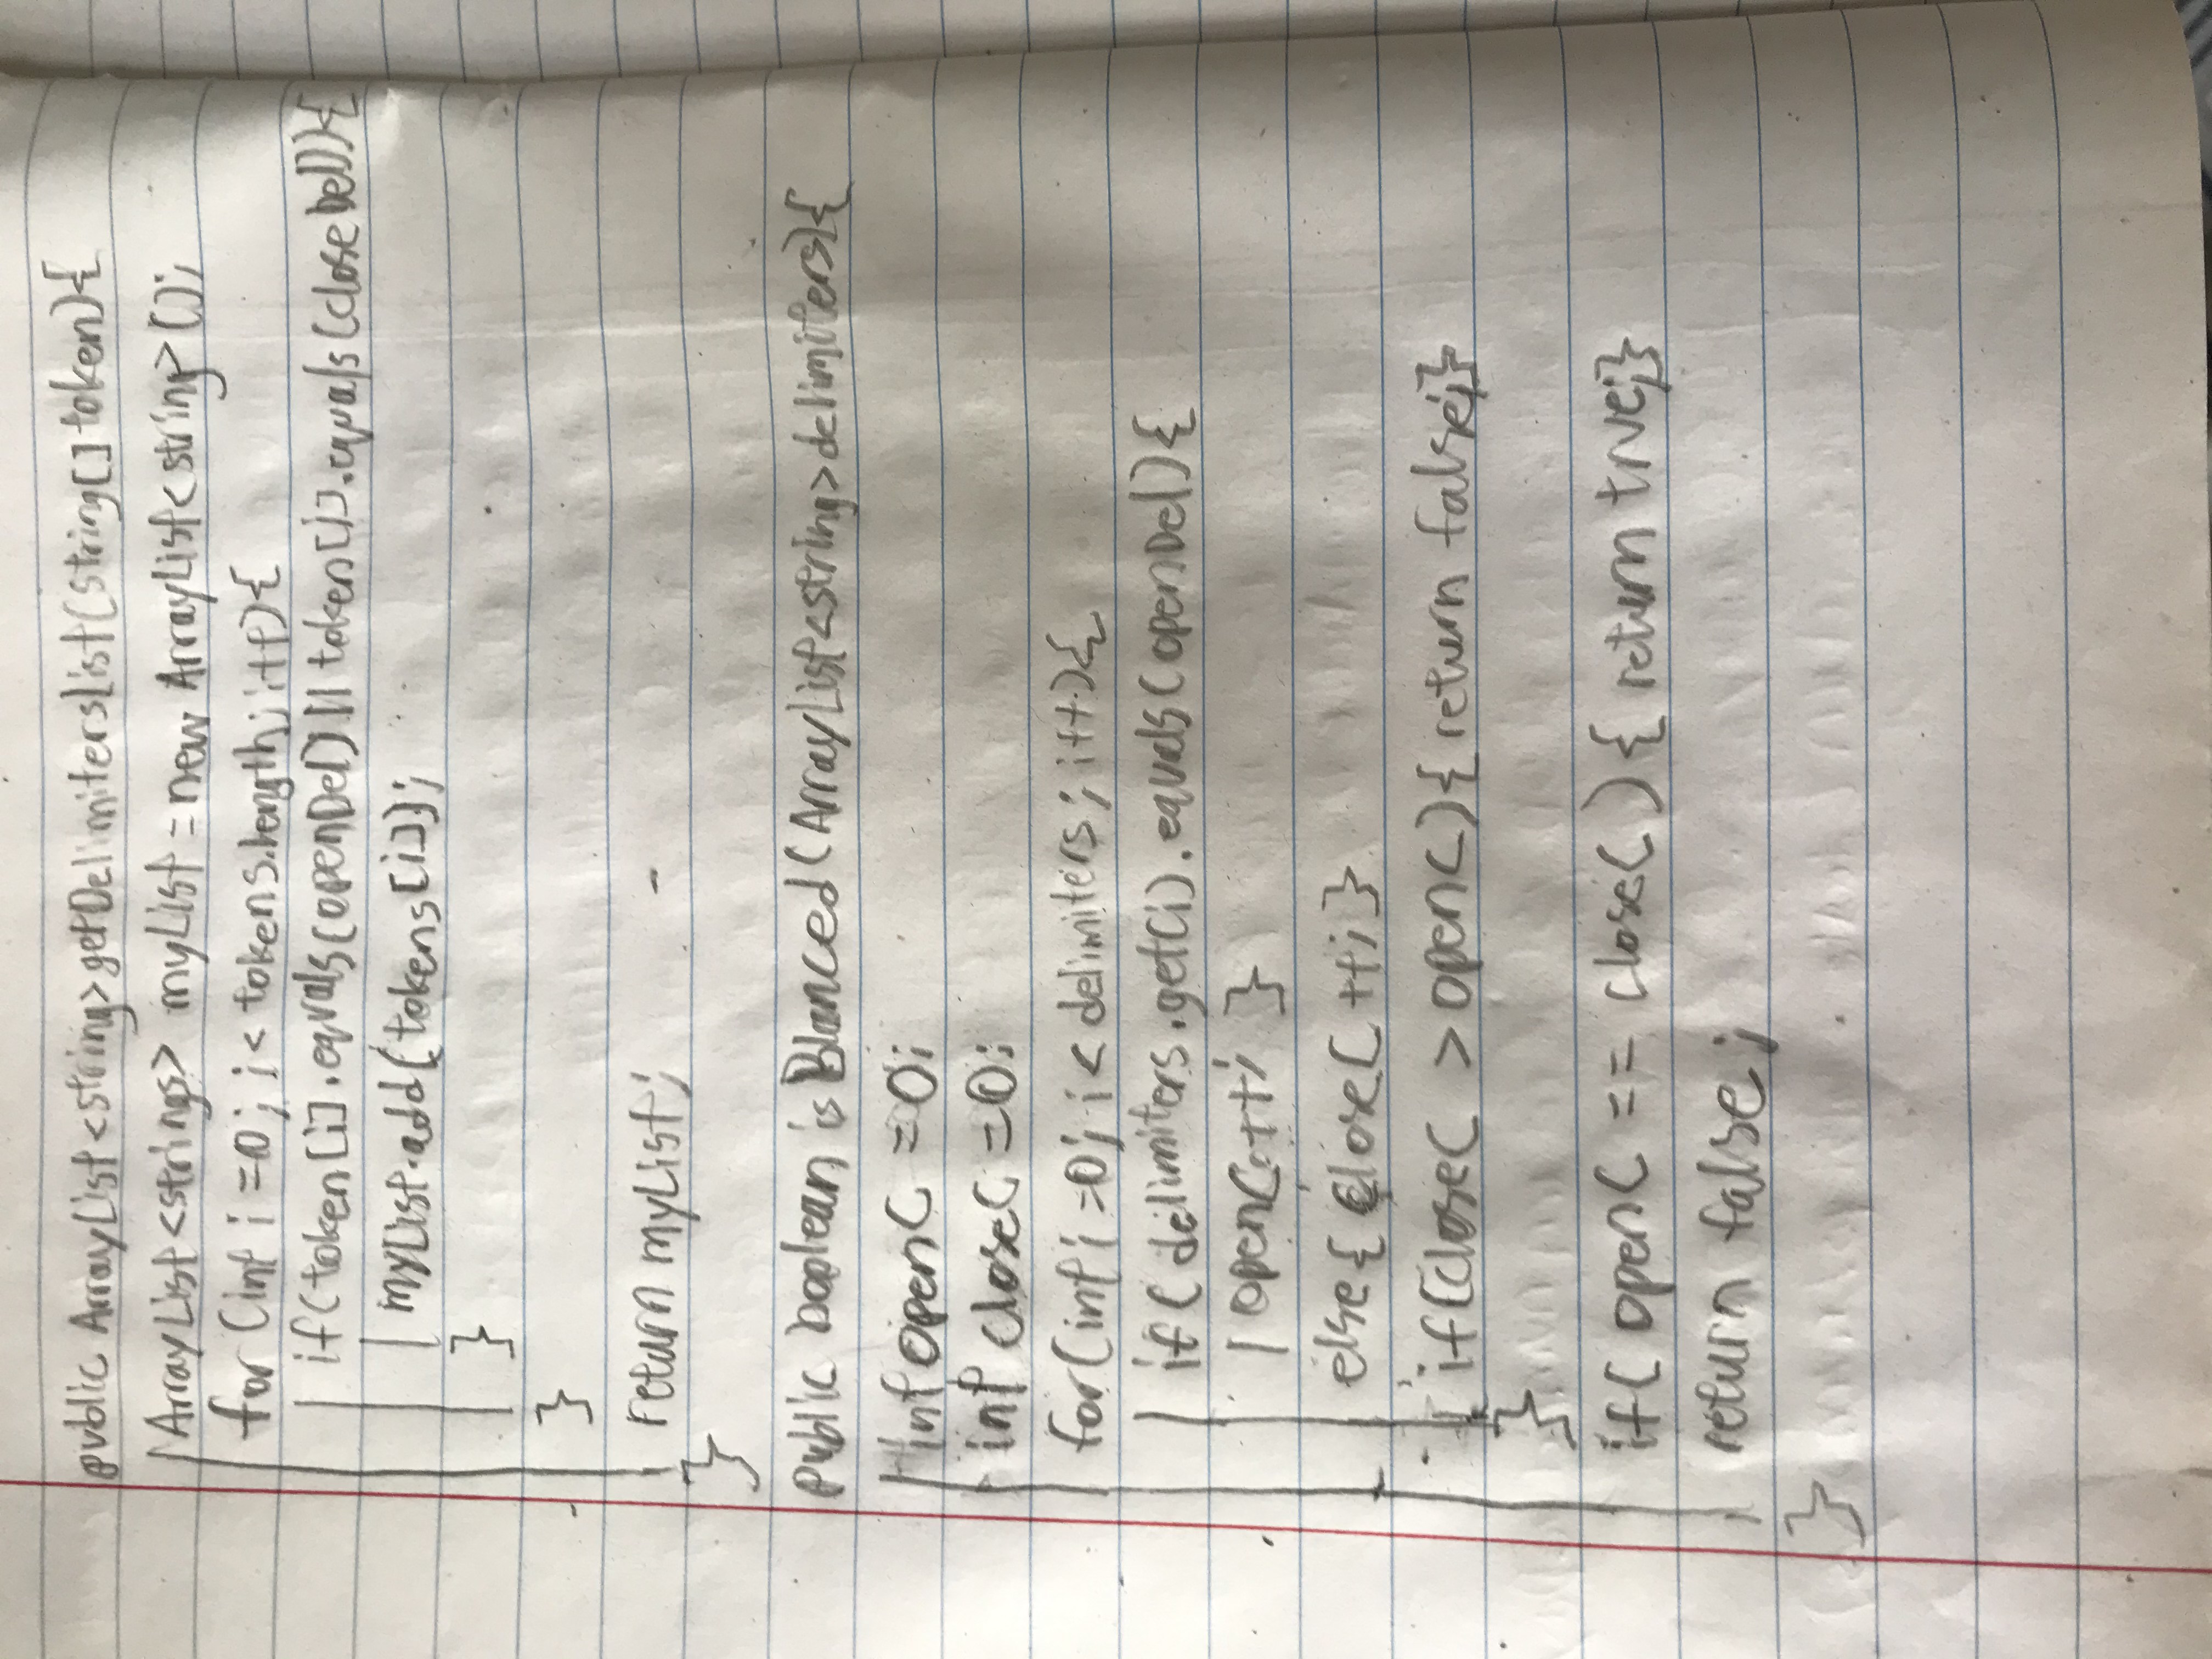 public ArrayList<string>getDelimitersList(String[] token){
ArrayList<strings> myList = new ArrayList<string>();
for (int i =0; i< tokens.length; i++){
if(token[i].equals(openDel) || token[i].equals(closeDel)){
myList.add(tokens[i]);
}
}
return myList;
}
public boolean isBlanced(ArrayList<string>delimiters){
int openC =0;
int closeC =0;
for(int i =0; i< delimiters; i++){
if( delimiters.get(i).equals(openDel){
openC++; }
else{ closeC ++; }
if(closeC > openC){ return false;}
}
if( openC == closeC ){ return true;}
return false;
}